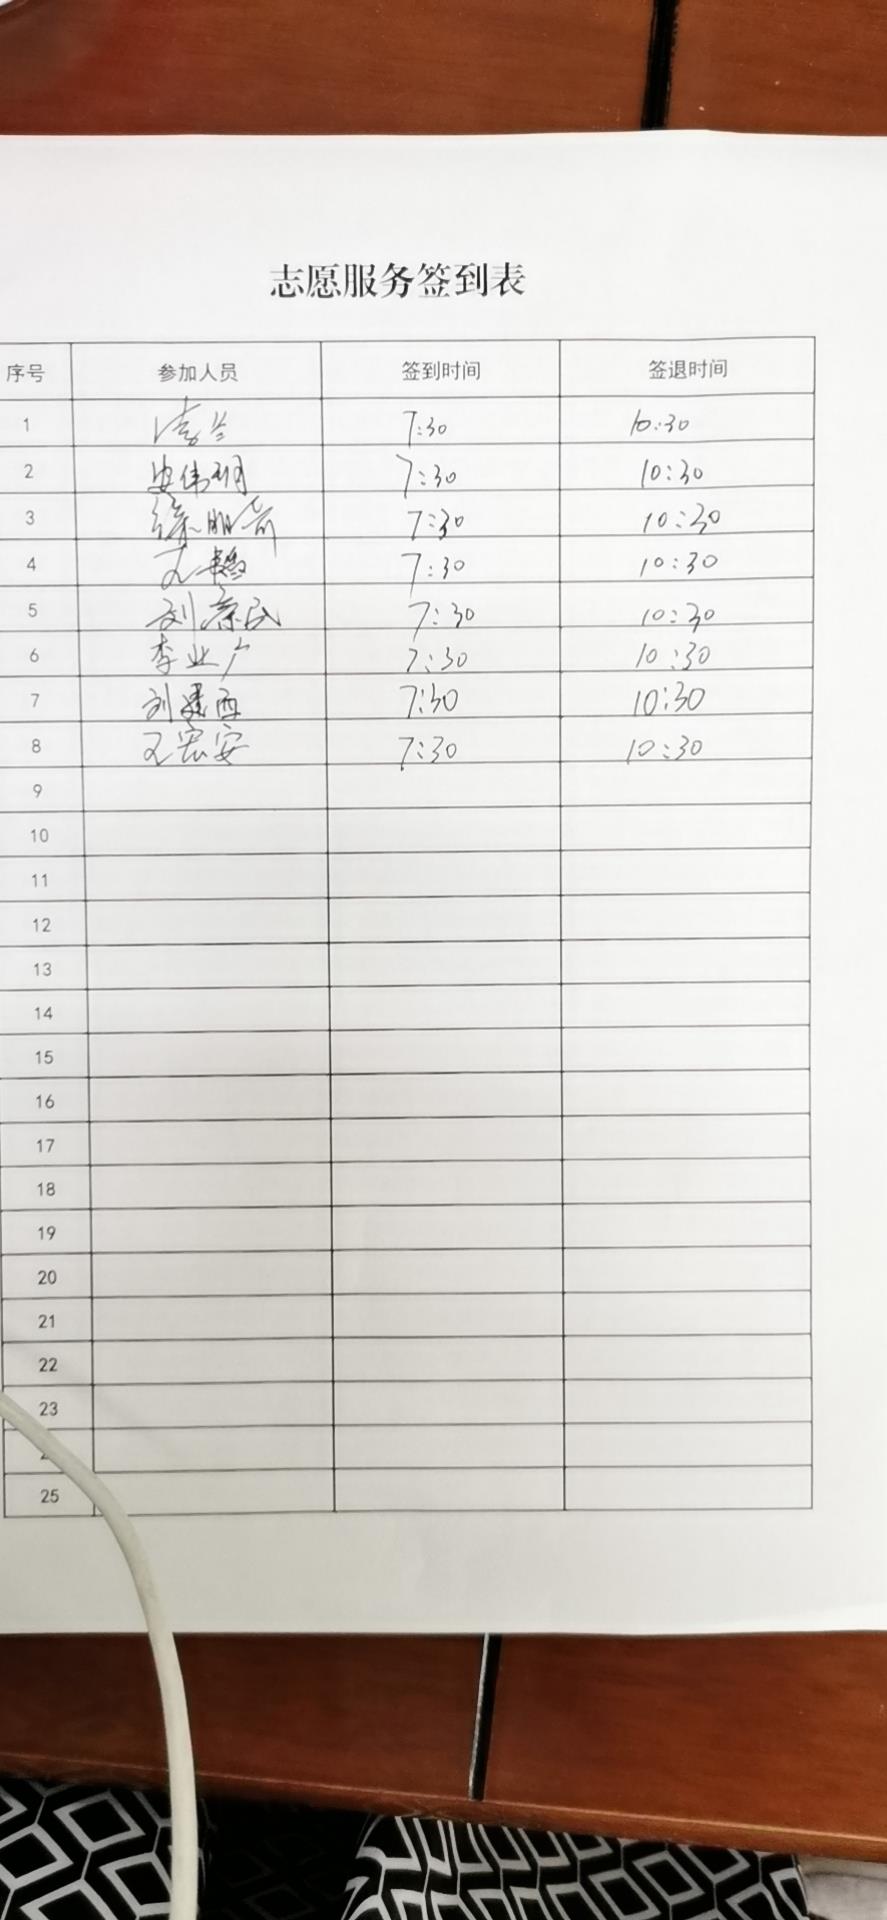 志愿服务签到表
序号 参加人员 签到时间 签退时间
1 7:30 10:30
2 安伟明 7:30 10:30
3 徐 7:30 10:30
4 王 7:30 10:30
5 刘景民 7:30 10:30
6 李业广 7:30 10:30
7 刘建西 7:30 10:30
8 王宏安 7:30 10:30
9
10
11
12
13
14
15
16
17
18
19
20
21
22
23
25